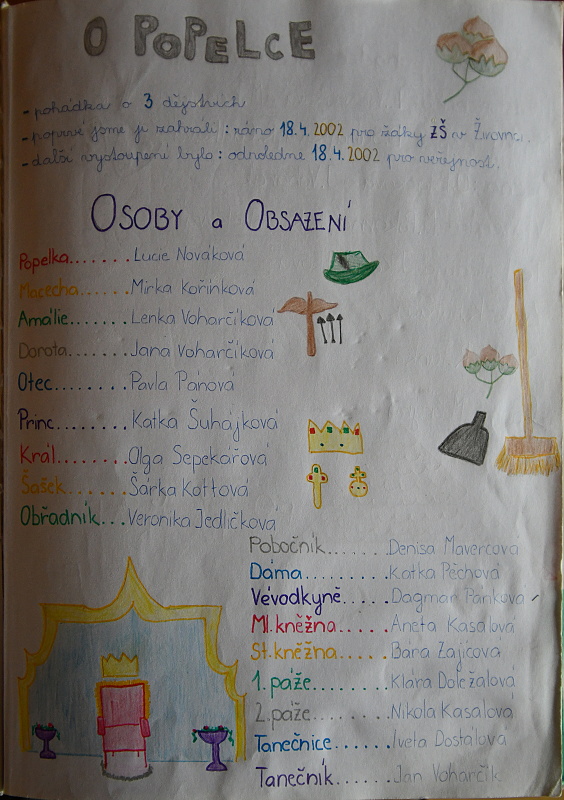 O POPELCE
- pohádka o 3 dějstvích
- poprvé jsme ji zahráli : ráno 18.4.2002 pro žáky ZŠ v Žirovnici.
- další vystoupení bylo : odpoledne 18.4.2002 pro veřejnost.
OSOBY a OBSAZENÍ
Popelka.......Lucie Nováková
Macecha......Mirka Kořínková
Amálie.......Lenka Voharčíková
Dorota.......Jana Voharčíková
Otec........Pavla Pánová
Princ........Katka Šuhájková
Král........Olga Sepekářová
Šašek......Šárka Kottová
Obřadník...Veronika Jedličková
Pobočník......Denisa Mavercová
Dáma.........Katka Pěchová
Vévodkyně.....Dagmar Pánková
Ml. kněžna.....Aneta Kasalová
St. kněžna.....Bára Zajícová
1. páže........Klára Doležalová
2. páže........Nikola Kasalová
Tanečnice......Iveta Dostálová
Tanečník......Jan Voharčík